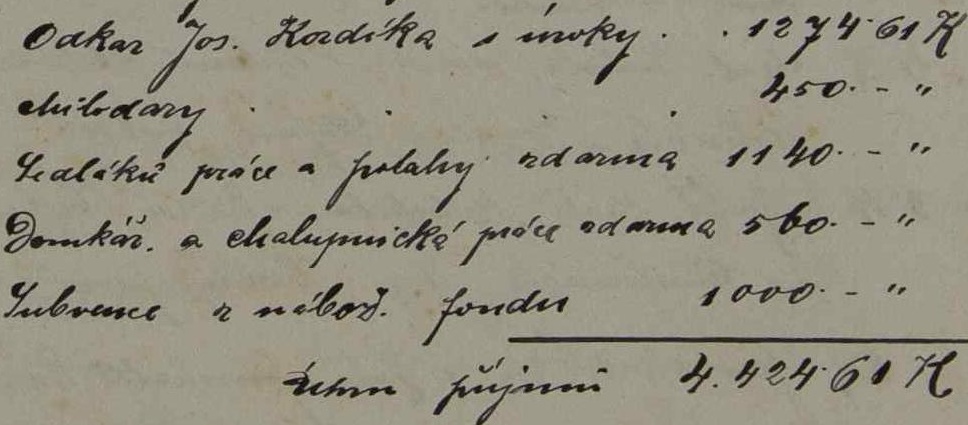 Odkaz Jos. Kordíka s úroky . . 1274·61 K
Milodary . . . 450· - "
Sedláků práce a potahy zdarma 1140· - "
Domkář. a chalupnická práce zdarma 560· - "
Subvence z nábož. fondu 1000· - "
Úhrn příjmů 4.424·61 K